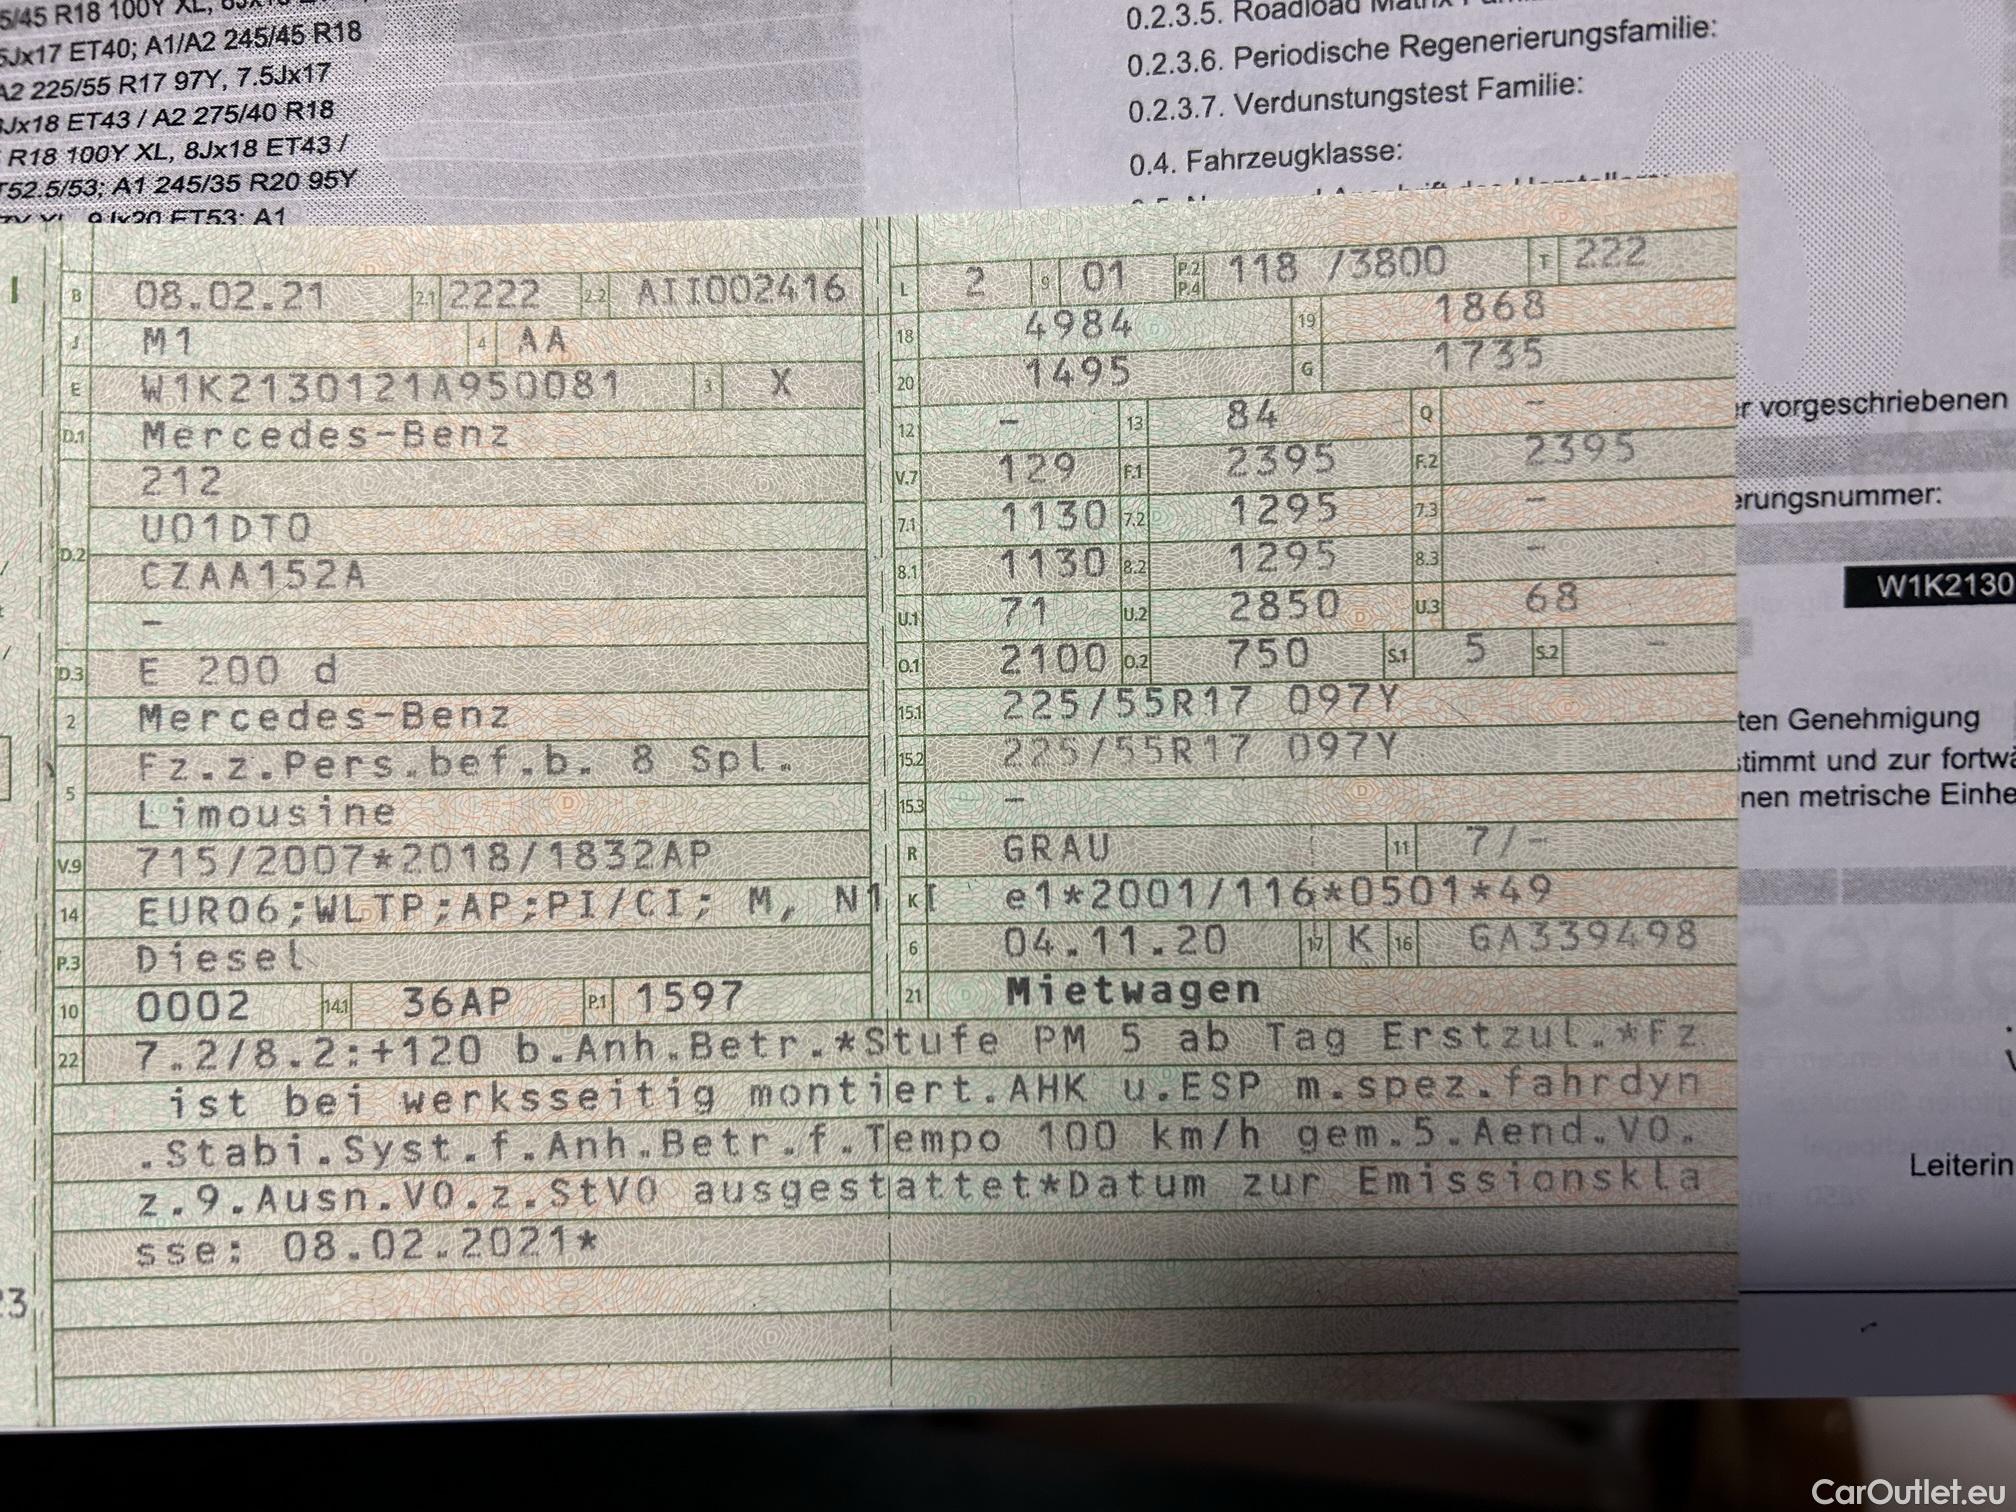 5/45 R18 100Y XL,
5Jx17 ET40; A1/A2 245/45 R18
A2 225/55 R17 97Y, 7.5Jx17
Jx18 ET43 / A2 275/40 R18
R18 100Y XL, 8Jx18 ET43 /
T52.5/53; A1 245/35 R20 95Y
9Jx20 ET53; A1
0.2.3.5. Roadload
0.2.3.6. Periodische Regenerierungsfamilie:
0.2.3.7. Verdunstungstest Familie:
0.4. Fahrzeugklasse:
B 08.02.21 2.1 2222 2.2 AII002416
J M1 4 AA
E W1K2130121A950081 3 X
D.1 Mercedes-Benz
212
U01DT0
D.2 CZAA152A
–
D.3 E 200 d
2 Mercedes-Benz
Fz.z.Pers.bef.b. 8 Spl.
5 Limousine
V.9 715/2007*2018/1832AP
14 EURO6;WLTP;AP;PI/CI; M, N1 I
P.3 Diesel
10 0002 14.1 36AP P.1 1597
L 2 9 01 P.2 P.4 118 /3800 T 222
18 4984 19 1868
20 1495 G 1735
12 – 13 84 Q –
V.7 129 F.1 2395 F.2 2395
7.1 1130 7.2 1295 7.3 –
8.1 1130 8.2 1295 8.3 –
U.1 71 U.2 2850 U.3 68
O.1 2100 O.2 750 S.1 5 S.2 –
15.1 225/55R17 097Y
15.2 225/55R17 097Y
15.3 –
R GRAU 11 7/-
K e1*2001/116*0501*49
6 04.11.20 17 K 16 GA339498
21 Mietwagen
22 7.2/8.2:+120 b.Anh.Betr.*Stufe PM 5 ab Tag Erstzul.*Fz.
ist bei werksseitig montiert.AHK u.ESP m.spez.fahrdyn
.Stabi.Syst.f.Anh.Betr.f.Tempo 100 km/h gem.5.Aend.VO.
z.9.Ausn.VO.z.StVO ausgestattet*Datum zur Emissionskla
sse: 08.02.2021*
23
r vorgeschriebenen
erungsnummer:
W1K2130
ten Genehmigung
timmt und zur fortwä
nen metrische Einhe
Leiterin
CarOutlet.eu